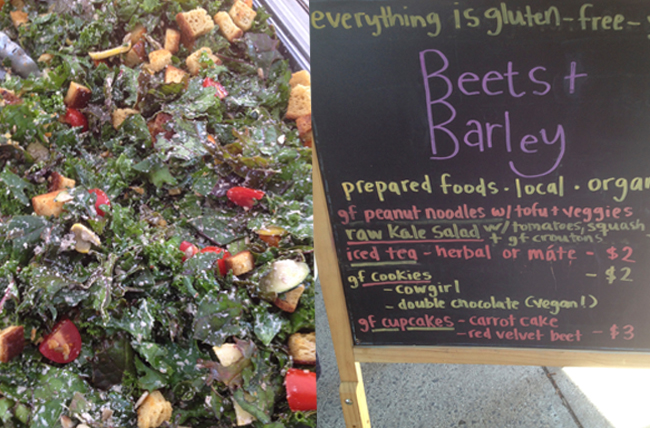 everything is gluten-free-
Beets +
Barley
prepared foods · local · orga
gf peanut noodles w/ tofu + veggies
raw Kale Salad w/ tomatoes, squash
+ gf croutons
iced tea - herbal or máte - $2
gf cookies - $2
- cowgirl
- double chocolate (vegan!)
gf cupcakes - carrot cake
- red velvet beet - $3